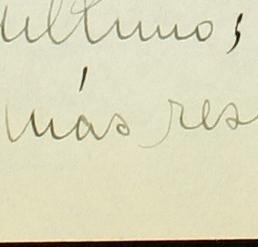 ultimo;
más res